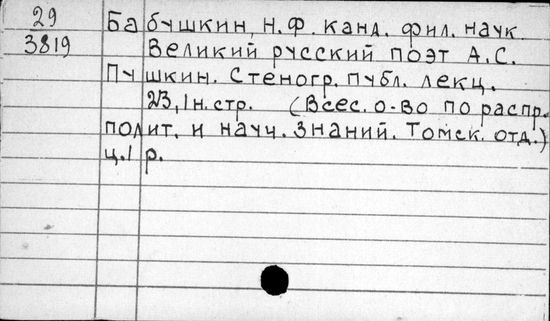 29
3819
Бабушкин, Н.Ф. канд. фил. наук.
Великий русский поэт А.С.
Пушкин. Стеногр. публ. лекц.
23,1н.стр. (Всес. о-во по распр.
полит. и науч. знаний. Томск. отд.)
ц.1 р.